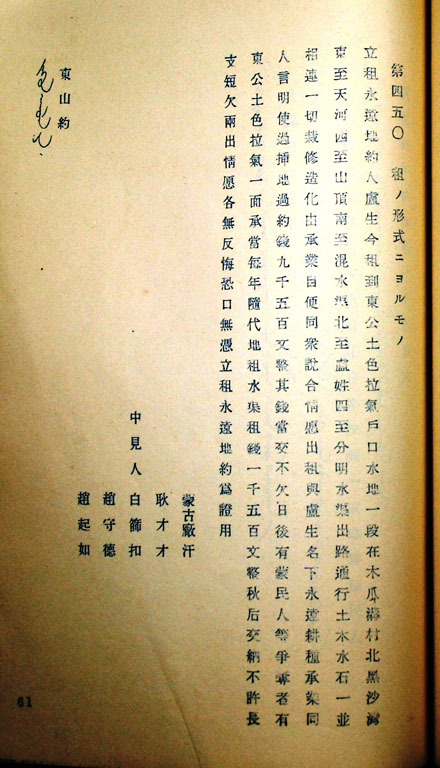 第四五〇 租ノ形式ニヨルモノ
立租永遠地約人盧生今租到東公土色拉氣戶口水地一段在木瓜溝村北黑沙灣
東至天河西至山頂南至混水渠北至盧姓四至分明水渠出路通行土木水石一並
相連一切栽修造化由承業自便同衆說合情愿出租與盧生名下永遠耕種承業同
人言明使過押地過約錢九千五百文整其錢當交不欠日後有蒙民人等爭奪者有
東公土色拉氣一面承當每年隨代地租水渠租錢一千五百文整秋后交納不許長
支短欠兩出情愿各無反悔恐口無憑立租永遠地約爲證用
蒙古廠汗
耿才才
中見人 白飾扣
趙守德
趙起如
東山約
61